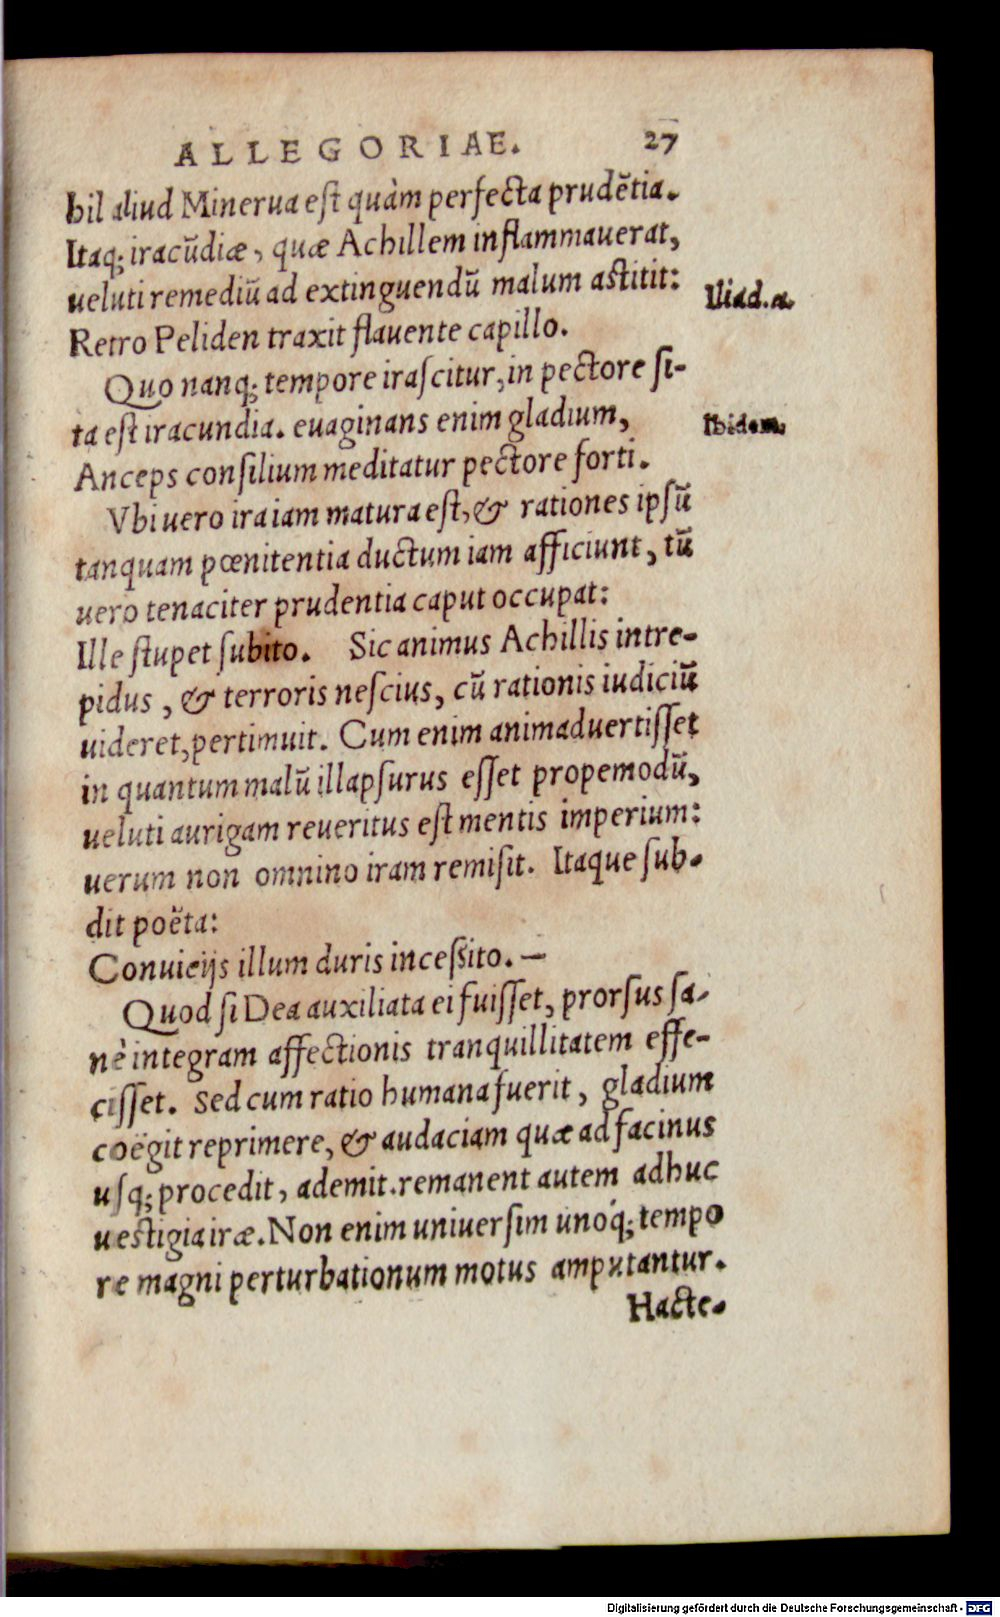 ALLEGORIAE. 27
hil aliud Minerua est quàm perfecta prudẽtia.
Itaq; iracũdiæ, quæ Achillem inflammauerat,
ueluti remediũ ad extinguendũ malum astitit:
Iliad.α.
Retro Peliden traxit flauente capillo.
Quo nanq; tempore irascitur, in pectore si-
ta est iracundia. euaginans enim gladium,
Ibidem.
Anceps consilium meditatur pectore forti.
Vbi uero ira iam matura est, & rationes ipsũ
tanquam pœnitentia ductum iam afficiunt, tũ
uero tenaciter prudentia caput occupat:
Ille stupet subito. Sic animus Achillis intre-
pidus, & terroris nescius, cũ rationis iudiciũ
uideret, pertimuit. Cum enim animaduertisset
in quantum malũ illapsurus esset propemodũ,
ueluti aurigam reueritus est mentis imperium:
uerum non omnino iram remisit. Itaque sub-
dit poëta:
Conuicijs illum duris incessito. —
Quod si Dea auxiliata ei fuisset, prorsus sa-
nè integram affectionis tranquillitatem effe-
cisset. Sed cum ratio humana fuerit, gladium
coëgit reprimere, & audaciam quæ ad facinus
usq; procedit, ademit. remanent autem adhuc
uestigia iræ. Non enim uniuersim unoq́; tempo
re magni perturbationum motus amputantur.
Hacte-
Digitalisierung gefördert durch die Deutsche Forschungsgemeinschaft - DFG